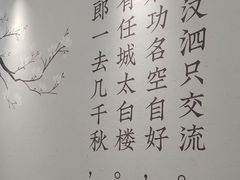 汶泗只交流。
功名空自好,
有任城太白楼。
郎一去几千秋,